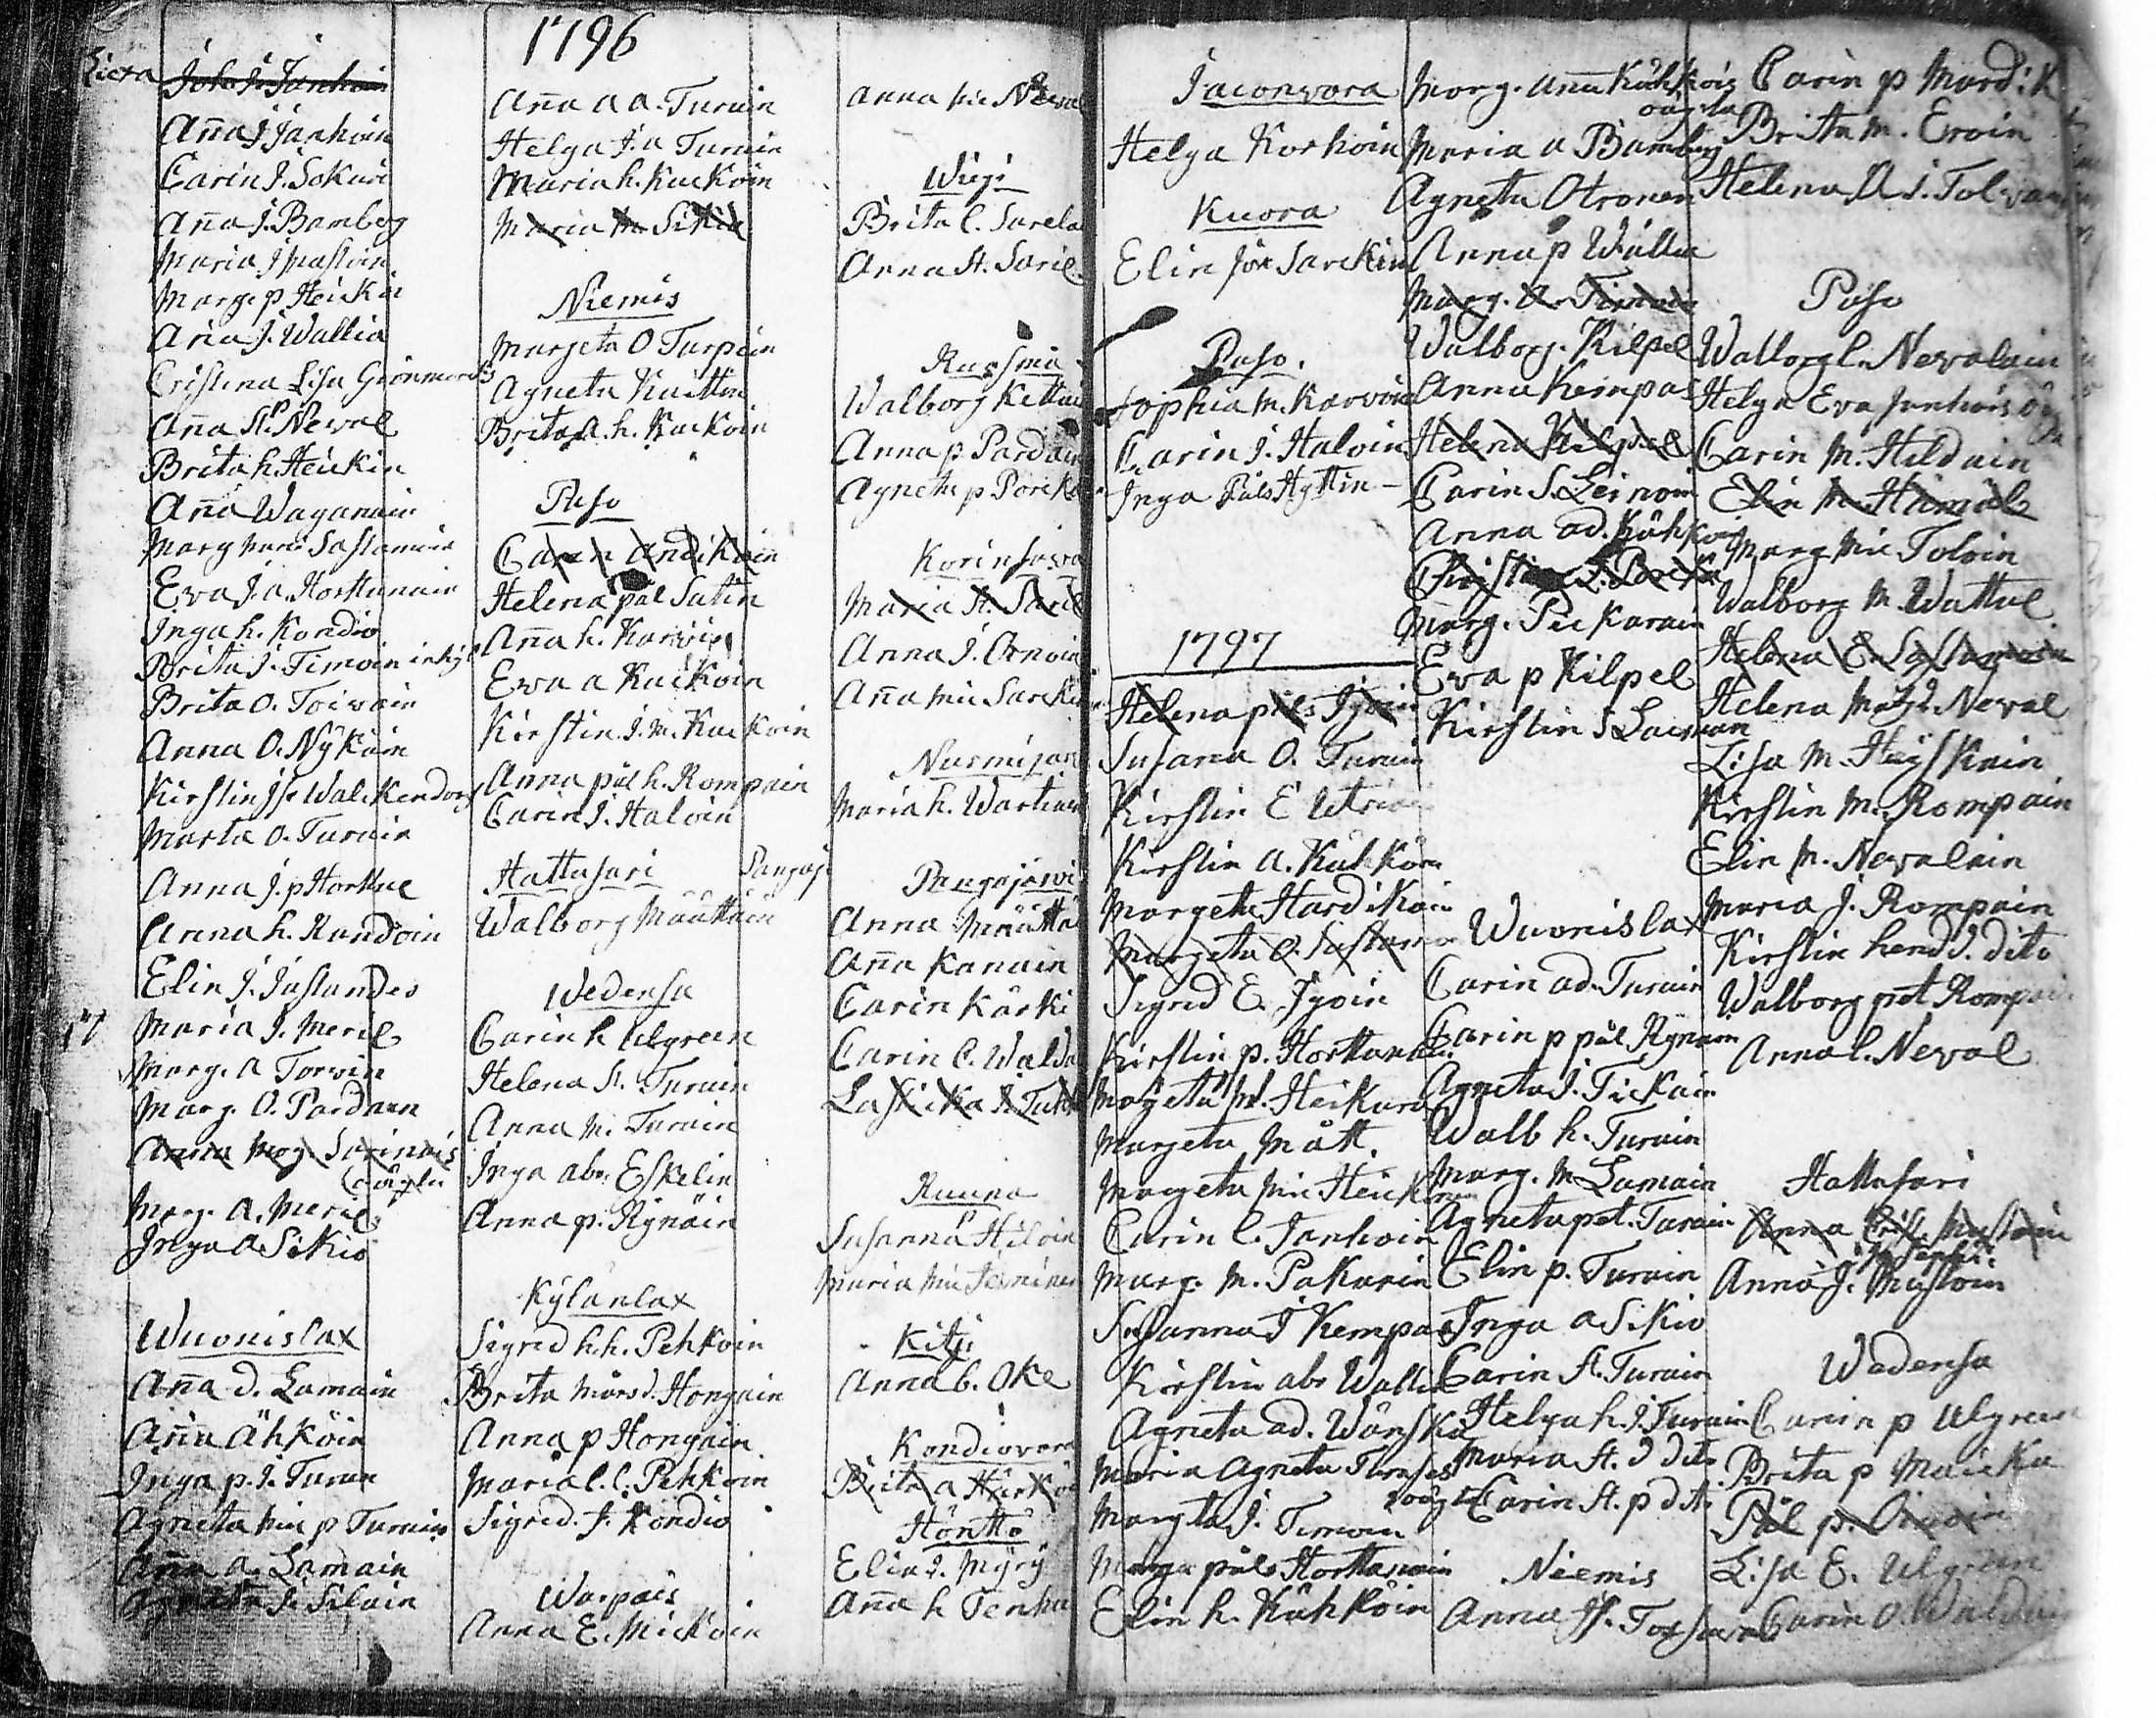 1796
Liexa
Anna J Janhoin
Carin J. Sokura
Anna J. Bamberg
Maria J Mustoin
Marg. p Heickin
Ana J. Wallia
Cristina Lisa Grönmark
Anna St. Neval
Brita h. Heickin
Anna Wäyanain
Marg Sastamoin
Eva J. a. Horttanain
Inga h. Kondio
Brita J. Timoin
Brita O. Toivain
Anna O. Nykäin
Kirstin Walkendorf
Marta O. Turuin
Anna J. p Horttue
Anna h. Kundoin
Elin J. Juslandes
Maria J. Meril
Marg. a Torvin
Marg. O. Pardaen
Anna Sarinais
Marg. A. Meril
Inga a Sikio
Wuonislax
Anna d. Lamain
Anna Ähköin
Inga p. J. Turun
Agneta p Turuin
Anna a. Lamain
Agneta J. Silain
Anna a a. Turuin
Helga J. a Turuin
Maria h. Kuckoin
Maria M Sikio
Niemis
Margeta O Turpein
Agneta Kuittin
Brita A. h. Kuckoin
Paso
Caren Andikain
Helena pål Sutin
Anna h. Karvin
Ewa a Kuckoin
Kirstin J. M. Kuckoin
Anna pål h. Rompain
Carin J. Halvin
Hattusari
Walborg Määttäin
Wedensa
Carin h Ulgreen
Helena St. Turuin
Anna M. Turuin
Inga abr. Eskelin
Anna p. Rynäin
Kylänlax
Sigred h. h. Pehkoin
Brita Mårs d. Hongain
Anna p Hongain
Maria l. l. Pehkoin
Sigred. J. Kondio
Warpais
Anna E. Mickoin
Anna Mic Neval
Wiigi
Brita l. Sarela
Anna St. Sarel
Ruosma
Walborg Kettui
Anna p Pardain
Agneta p Porck
Korinsova
Maria St. Saril
Anna J. Ornoin
Anna Mic Sarcki
Nurmijar
Maria h. Wartiain
Pangaj.
Pangajärvi
Anna Määttä
Anna Kanain
Carin Kärki
Carin C. Walda
Ruuna
Susanna Hiloin
Maria Mic Jeminen
Kitsi
Anna b. Oke
Kondiovara
Brita a Hurkoi
Höntto
Elin J. Myry
Anna h Tenhu
Jaconvora
Helga Korhoin
Kuora
Elin Jör Sarckin
Paso.
Sophia M. Karvoin
Carin J. Halvoin
Inga Påls Hyttin
1797
Helena påls Jyoin
Susana O. Turuin
Kirstin E Utrioi
Kirstin A. Kähköin
Margeta Hardikoin
Margeta O. Sastamo
Sigred E. Jyoin
Kirstin p. Horttana
Mageta M. Heikura
Margeta Mått.
Margeta Mic Heick
Carin C. Janhoin
Marg. M. Pakarin
Susanna J Kempas
Kirstin abr Wallia
Agneta ad. Wänska
Maria Agneta Turuses
Margta J. Timoin
Marga påls Horttanain
Elin h. Kähköin
Marg. Anna Kähkois
Maria a Bamberg
Agneta Otronen
Anna p Wallia
Marg. A. Timoin
Walborg. Kilpel
Anna Kempas
Helena Kilpel
Carin S. Leinoin
Anna ad. Kähkoin
Marg. Puckarain
Eva p Kilpel
Kirstin S Lacman
Wuonislax
Carin ad. Turuin
Carin p pål Rynäin
Agneta J. Tickain
Walb h. Turuin
Marg. M Lamain
Agneta pet. Turuin
Elin p. Turuin
Inga a Sikio
Carin St. Turuin
Helga h. J. Turuin
Maria St. J dito
Carin St. p dito
Niemis
Carin p Mard: K
Brita M. Eroin
Helena A J. Tolvan
Paso
Walborg l. Nevalain
Helga Eva Janhois
Carin M. Hildain
Elin M Himäl
Marg Mic Tolvin
Walborg M. Wattul
Helena E. Sastamoin
Helena Neval
Lisa M. Heyskain
Kirstin M. Rompain
Elin M. Nevalain
Maria J. Rompain
Kirstin hend J. dito
Walborg pet Rompai
Anna l. Neval
Hattusari
Anna J. Mustoin
Wedensa
Carin p Ulgreen
Brita p Maicka
Lisa E. Ulgreen